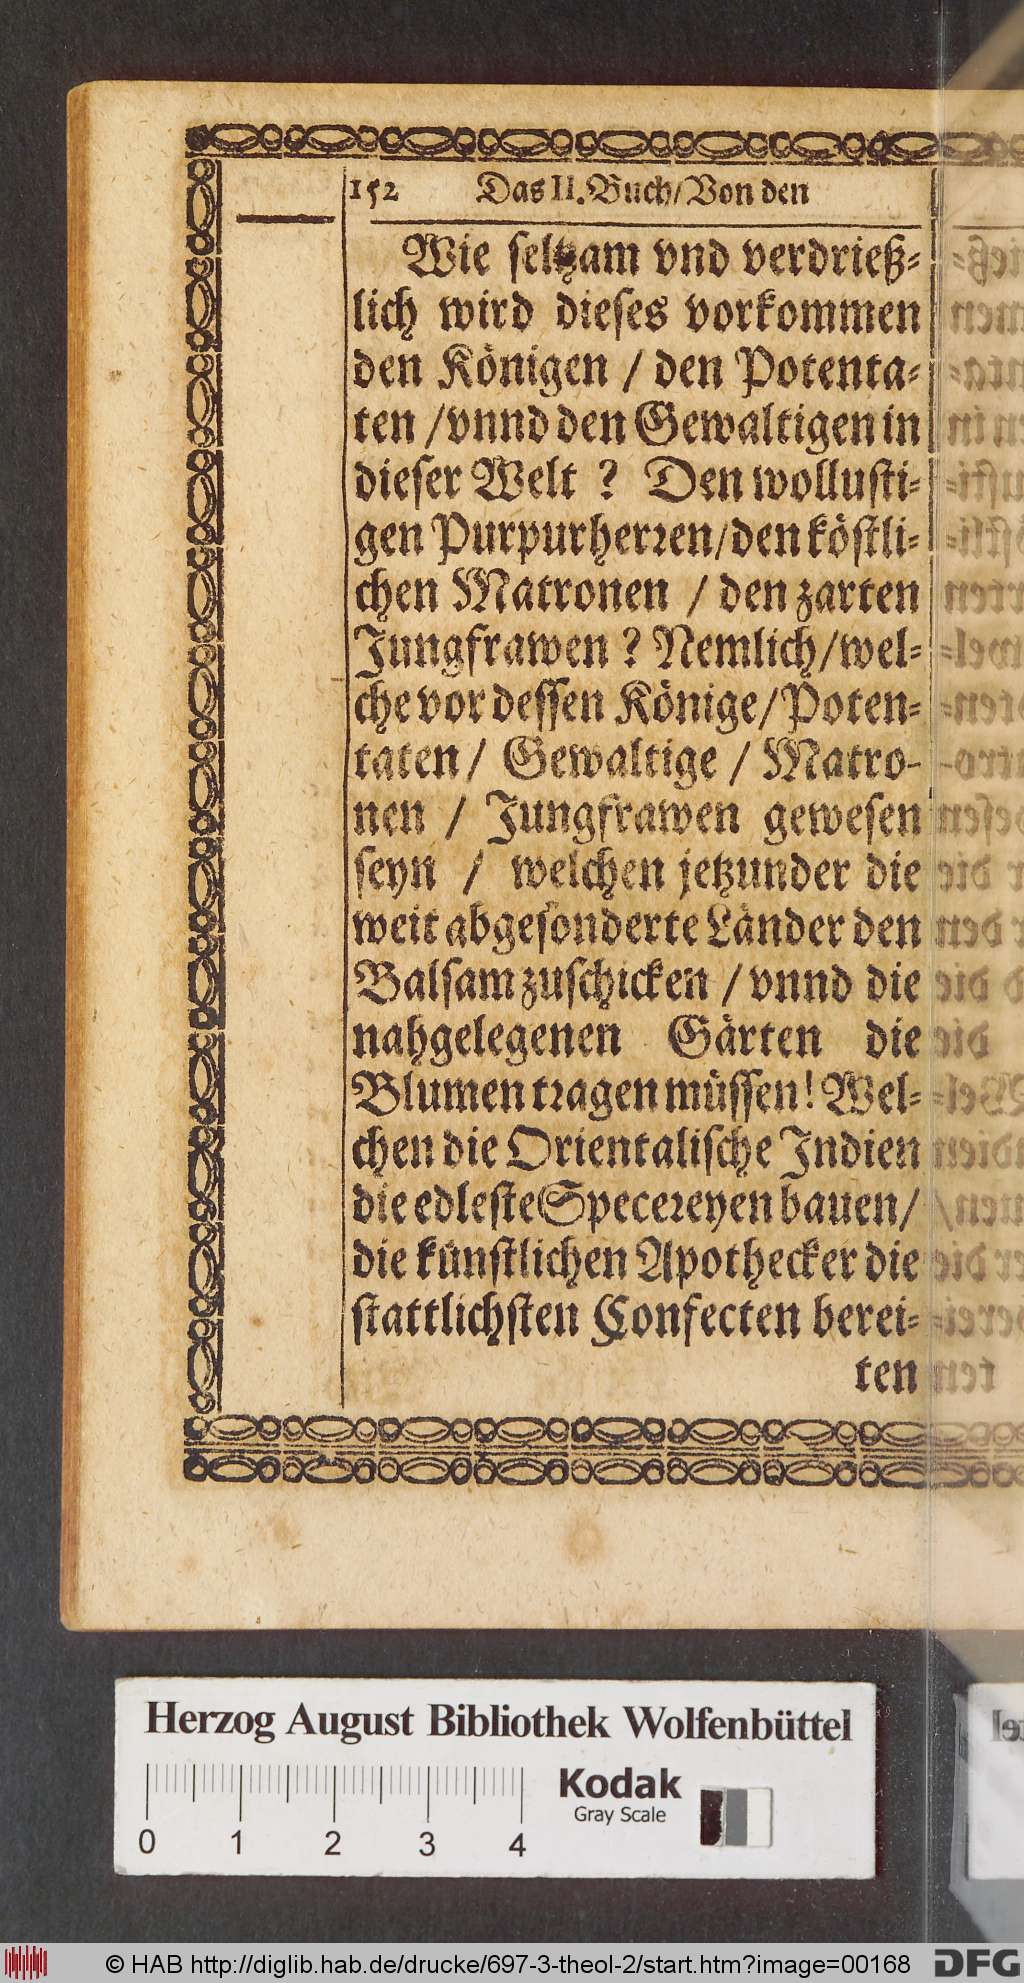 152 Das II. Buch/Von den
Wie seltzam vnd verdrieß-
lich wird dieses vorkommen
den Königen / den Potenta-
ten /vnnd den Gewaltigen in
dieser Welt ? Den wollusti-
gen Purpurherren/den köstli-
chen Matronen / den zarten
Jungfrawen ? Nemlich/wel-
che vor dessen Könige/Poten-
taten/ Gewaltige / Matro-
nen / Jungfrawen gewesen
seyn / welchen jetzunder die
weit abgesonderte Länder den
Balsam zuschicken / vnnd die
nahgelegenen Gärten die
Blumen tragen müssen! Wel-
chen die Orientalische Indien
die edleste Specereyen bauen/
die künstlichen Apothecker die
stattlichsten Confecten berei-
ten
Herzog August Bibliothek Wolfenbüttel
Kodak
Gray Scale
0 1 2 3 4
© HAB http://diglib.hab.de/drucke/697-3-theol-2/start.htm?image=00168 DFG